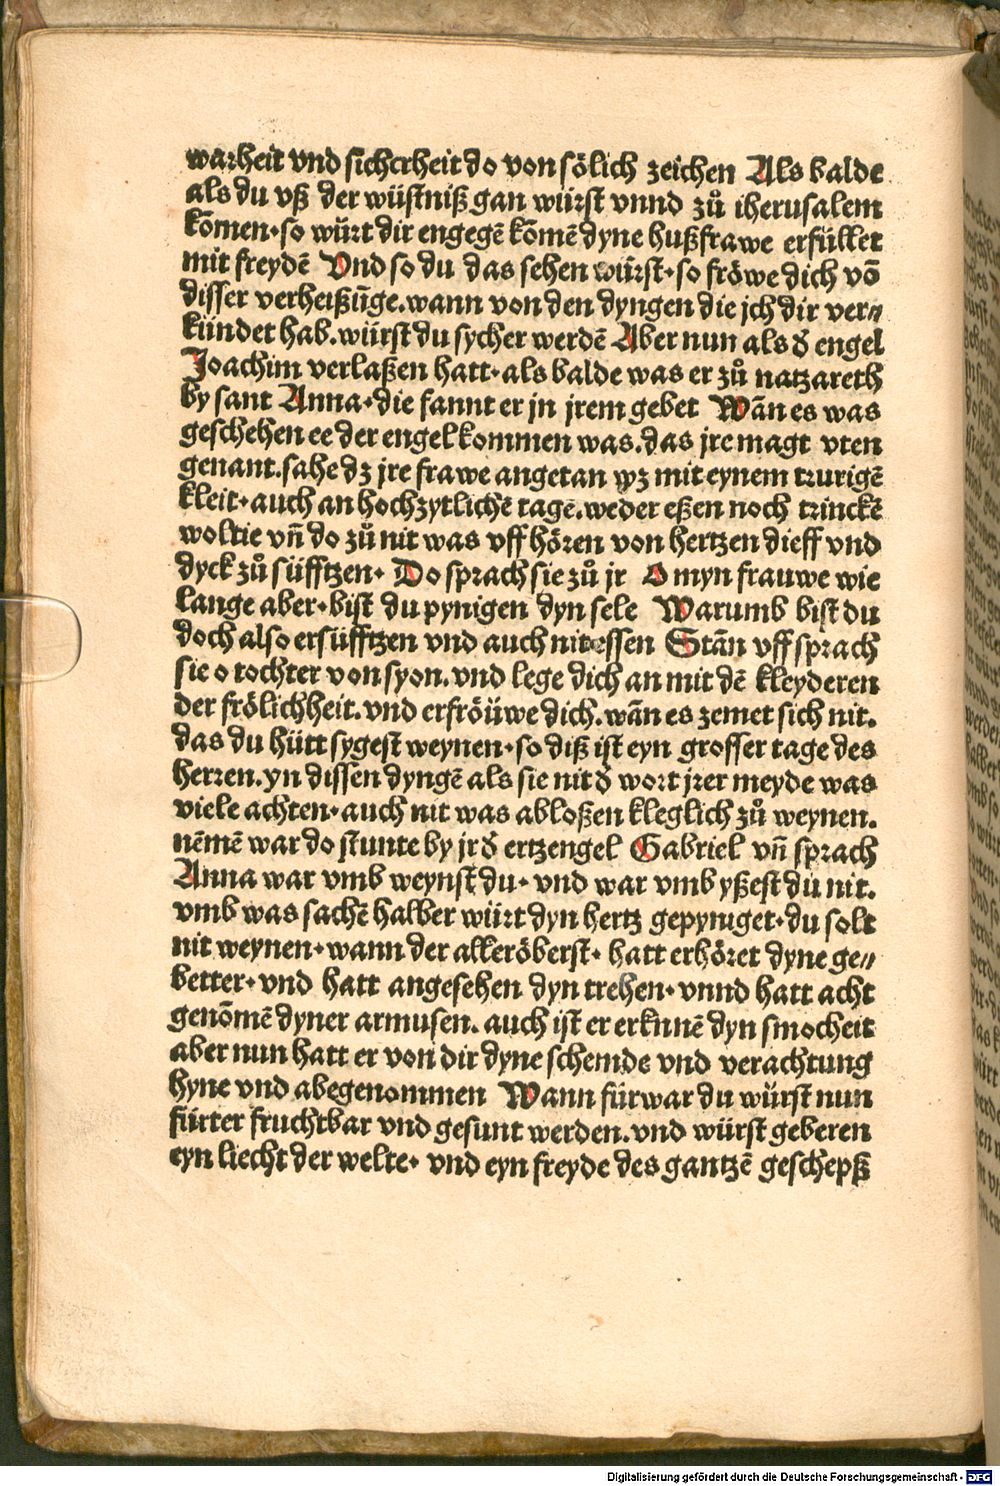 warheit vnd sicherheit do von sölich zeichen Als balde
als du vß der wüstniß gan würst vnnd zů iherusalem
kōmen·so würt dir engegē kōmē dyne hußfrawe erfüllet
mit freydē Vnd so du das sehen würst·so fröwe dich vō
disser verheißūge.wann von den dyngen die jch dir ver⸗
kündet hab.würst du sycher werdē Aber nun als d̄ engel
Joachim verlaßen hatt·als balde was er zů natzareth
by sant Anna·die fannt er jn jrem gebet Wān es was
geschehen ee der engel kommen was.das jre magt vten
genant.sahe dz jre frawe angetan wz mit eynem trurigē
kleit·auch an hochzytlichē tagē.weder eßen noch trinckē
woltie vn̄ do zů nit was vff hören von hertzen dieff vnd
dyck zů süfftzen· Do sprach sie zů jr O myn frauwe wie
lange aber·bist du pynigen dyn sele Warumb bist du
doch also ersüfftzen vnd auch nit essen Stān vff sprach
sie o tochter von syon.vnd lege dich an mit dē kleyderen
der frölichheit.vnd erfröüwe dich.wān es zemet sich nit.
das du hütt sygest weynen·so diß ist eyn grosser tage des
herren.yn dissen dyngē als sie nit d̄ wort jrer meyde was
viele achten·auch nit was abloßen kleglich zů weynen.
nēmē war do stunte by jr d̄ ertzengel Gabriel vn̄ sprach
Anna war vmb weynst du· vnd war vmb yßest du nit.
vmb was sachē halber würt dyn hertz gepyniget·du solt
nit weynen·wann der alleröberst· hatt erhöret dyne ge⸗
better·vnd hatt angesehen dyn trehen·vnnd hatt acht
genōmē dyner armusen. auch ist er erknnē dyn smocheit
aber nun hatt er von dir dyne schemde vnd verachtung
hyne vnd abegenommen Wann fürwar du würst nun
fürter fruchtbar vnd gesunt werden.vnd würst geberen
eyn liecht der welte· vnd eyn freyde des gantzē geschepß
Digitalisierung gefördert durch die Deutsche Forschungsgemeinschaft - DFG